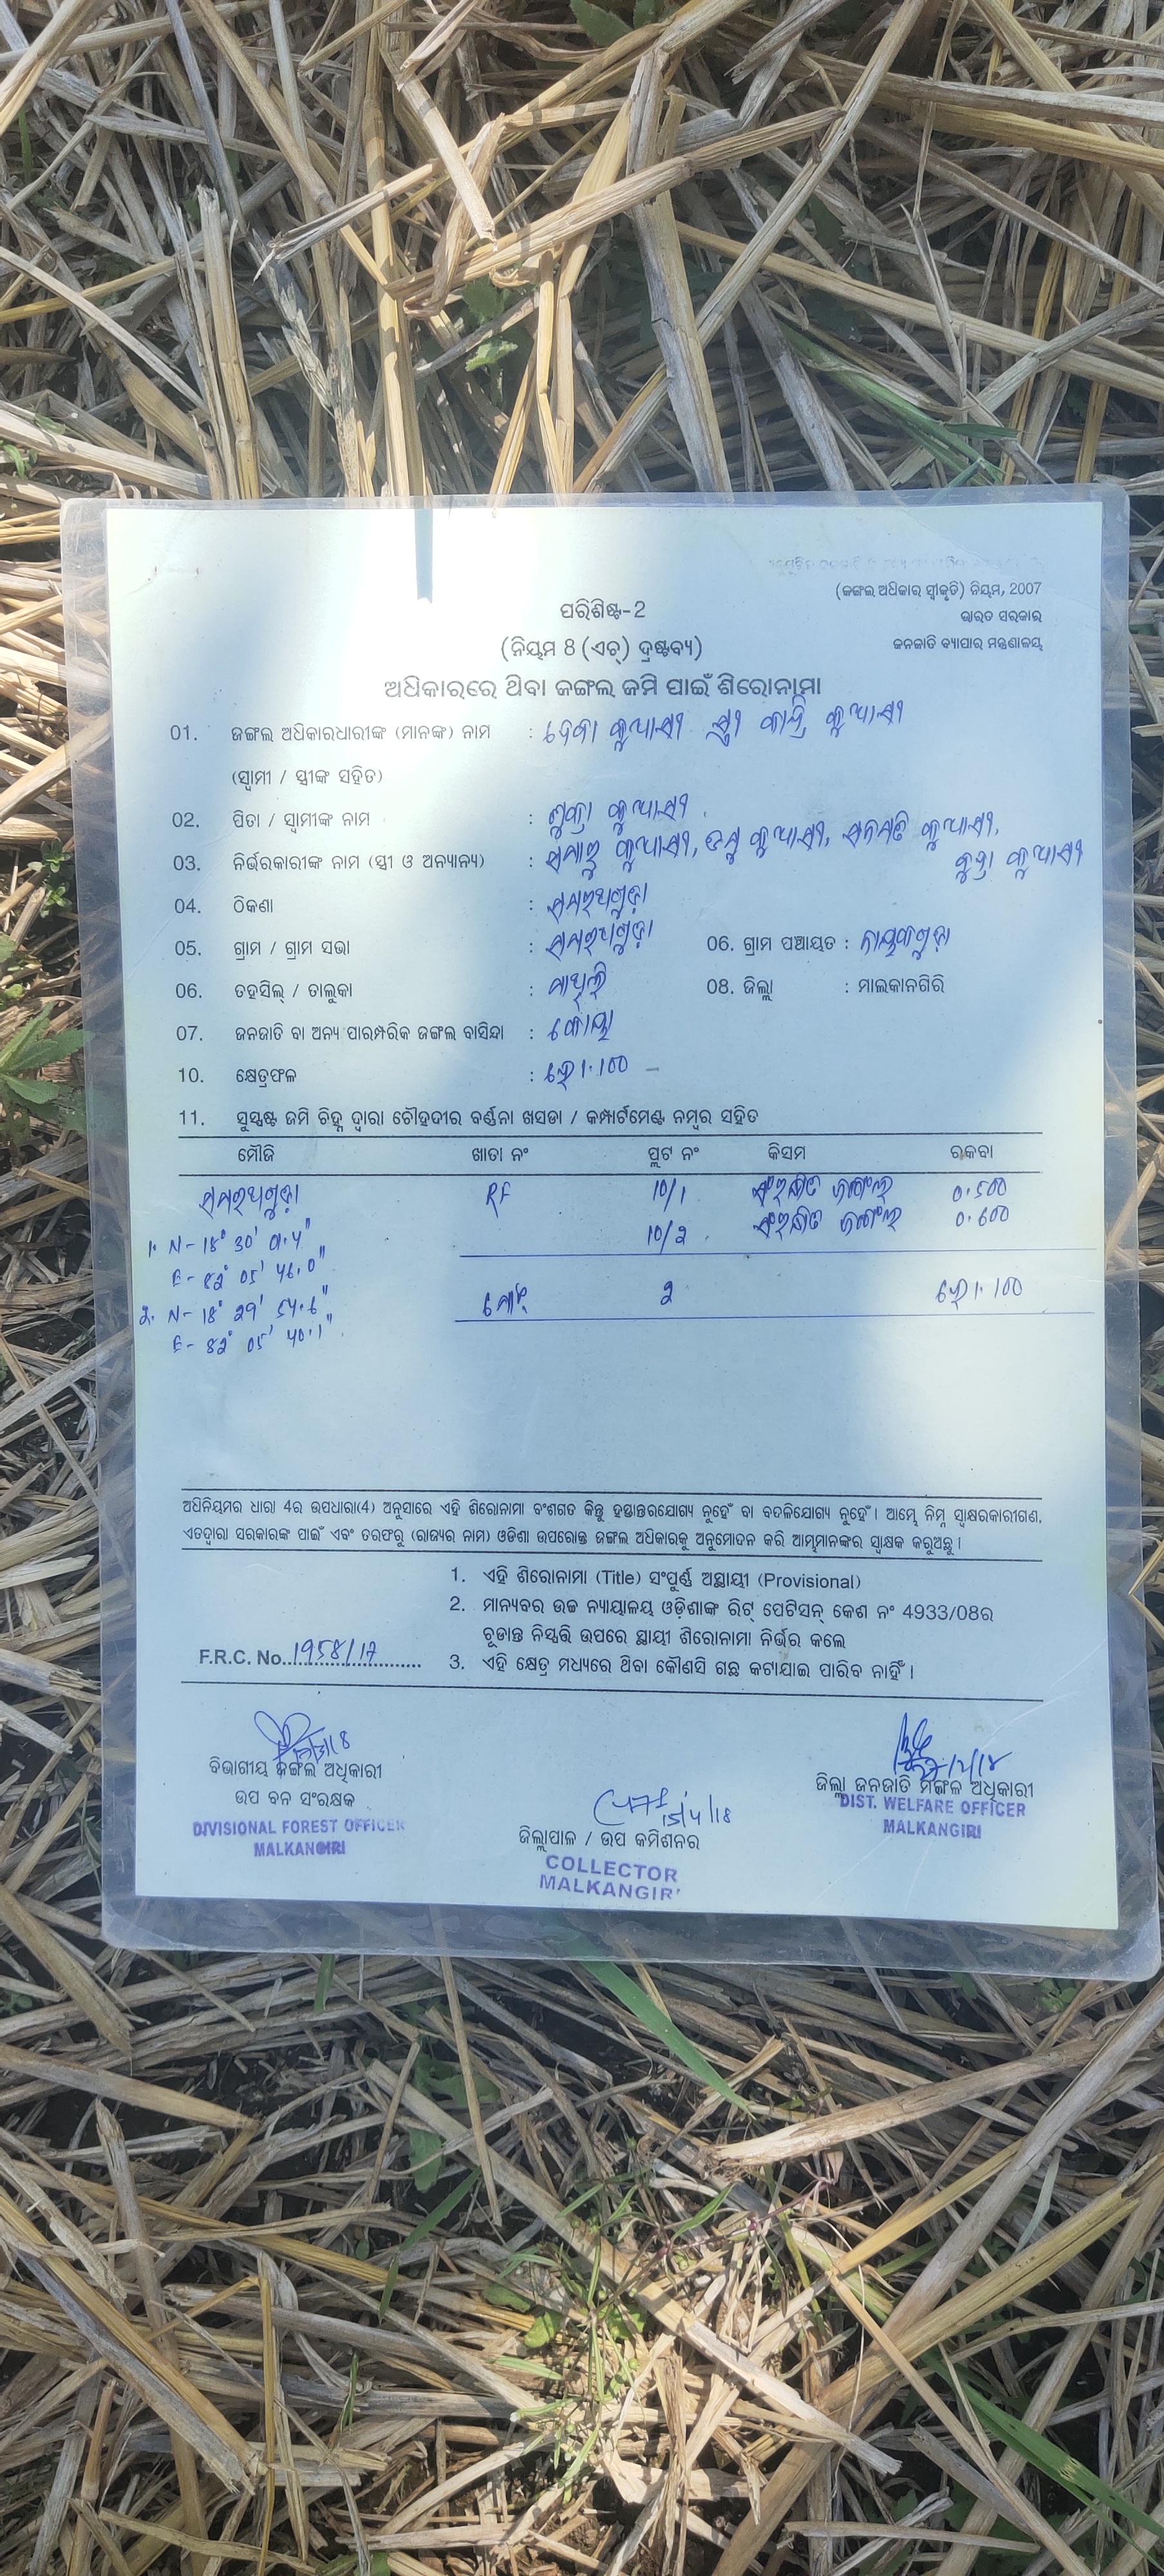 (ଜଙ୍ଗଲ ଅଧିକାର ସ୍ୱୀକୃତି) ନିୟମ, 2007
ପରିଶିଷ୍ଟ-2
ଭାରତ ସରକାର
(ନିୟମ 8 (ଏଚ୍) ଦ୍ରଷ୍ଟବ୍ୟ)
ଜନଜାତି ବ୍ୟାପାର ମନ୍ତ୍ରଣାଳୟ
ଅଧିକାରରେ ଥିବା ଜଙ୍ଗଲ ଜମି ପାଇଁ ଶିରୋନାମା
01. ଜଙ୍ଗଲ ଅଧିକାରଧାରୀଙ୍କ (ମାନଙ୍କ) ନାମ :
(ସ୍ୱାମୀ / ସ୍ତ୍ରୀଙ୍କ ସହିତ)
02. ପିତା / ସ୍ୱାମୀଙ୍କ ନାମ :
03. ନିର୍ଭରକାରୀଙ୍କ ନାମ (ସ୍ତ୍ରୀ ଓ ଅନ୍ୟାନ୍ୟ) :
04. ଠିକଣା :
05. ଗ୍ରାମ / ଗ୍ରାମ ସଭା : 06. ଗ୍ରାମ ପଞ୍ଚାୟତ :
06. ତହସିଲ୍ / ତାଲୁକା : ମାଥିଲି 08. ଜିଲ୍ଲା : ମାଲକାନଗିରି
07. ଜନଜାତି ବା ଅନ୍ୟ ପାରମ୍ପରିକ ଜଙ୍ଗଲ ବାସିନ୍ଦା : କୋୟା
10. କ୍ଷେତ୍ରଫଳ : ହେ 1.100
11. ସୁସ୍ପଷ୍ଟ ଜମି ଚିହ୍ନ ଦ୍ୱାରା ଚୌହଦୀର ବର୍ଣ୍ଣନା ଖସଡା / କମ୍ପାର୍ଟମେଣ୍ଟ ନମ୍ବର ସହିତ
ମୌଜି ଖାତା ନଂ ପ୍ଲଟ ନଂ କିସମ ରକବା
RF 10/1 ସଂରକ୍ଷିତ ଜଙ୍ଗଲ 0.500
10/2 ସଂରକ୍ଷିତ ଜଙ୍ଗଲ 0.600
1. N- 18° 30' 01.4"
E- 82° 05' 46.0"
2. N- 18° 29' 54.6"
E- 82° 05' 40.1"
ମୋଟ୍ 2 ହେ 1.100
ଅଧିନିୟମର ଧାରା 4ର ଉପଧାରା(4) ଅନୁସାରେ ଏହି ଶିରୋନାମା ବଂଶଗତ କିନ୍ତୁ ହସ୍ତାନ୍ତରଯୋଗ୍ୟ ନୁହେଁ ବା ବଦଳିଯୋଗ୍ୟ ନୁହେଁ । ଆମ୍ଭେ ନିମ୍ନ ସ୍ୱାକ୍ଷରକାରୀଗଣ,
ଏତଦ୍ୱାରା ସରକାରଙ୍କ ପାଇଁ ଏବଂ ତରଫରୁ (ରାଜ୍ୟର ନାମ) ଓଡିଶା ଉପରୋକ୍ତ ଜଙ୍ଗଲ ଅଧିକାରକୁ ଅନୁମୋଦନ କରି ଆମ୍ଭମାନଙ୍କର ସ୍ୱାକ୍ଷକ କରୁଅଛୁ ।
1. ଏହି ଶିରୋନାମା (Title) ସଂପୂର୍ଣ୍ଣ ଅସ୍ଥାୟୀ (Provisional)
2. ମାନ୍ୟବର ଉଚ୍ଚ ନ୍ୟାୟାଳୟ ଓଡ଼ିଶାଙ୍କ ରିଟ୍ ପେଟିସନ୍ କେଶ ନଂ 4933/08ର
ଚୂଡାନ୍ତ ନିସ୍ପତ୍ତି ଉପରେ ସ୍ଥାୟୀ ଶିରୋନାମା ନିର୍ଭର କଲେ
F.R.C. No. 1958/17
3. ଏହି କ୍ଷେତ୍ର ମଧ୍ୟରେ ଥିବା କୌଣସି ଗଛ କଟାଯାଇ ପାରିବ ନାହିଁ ।
ବିଭାଗୀୟ ଜଙ୍ଗଲ ଅଧିକାରୀ
ଉପ ବନ ସଂରକ୍ଷକ
DIVISIONAL FOREST OFFICER
MALKANGIRI
15/4/18
ଜିଲ୍ଲାପାଳ / ଉପ କମିଶନର
COLLECTOR
MALKANGIRI
ଜିଲ୍ଲା ଜନଜାତି ମଙ୍ଗଳ ଅଧିକାରୀ
DIST. WELFARE OFFICER
MALKANGIRI